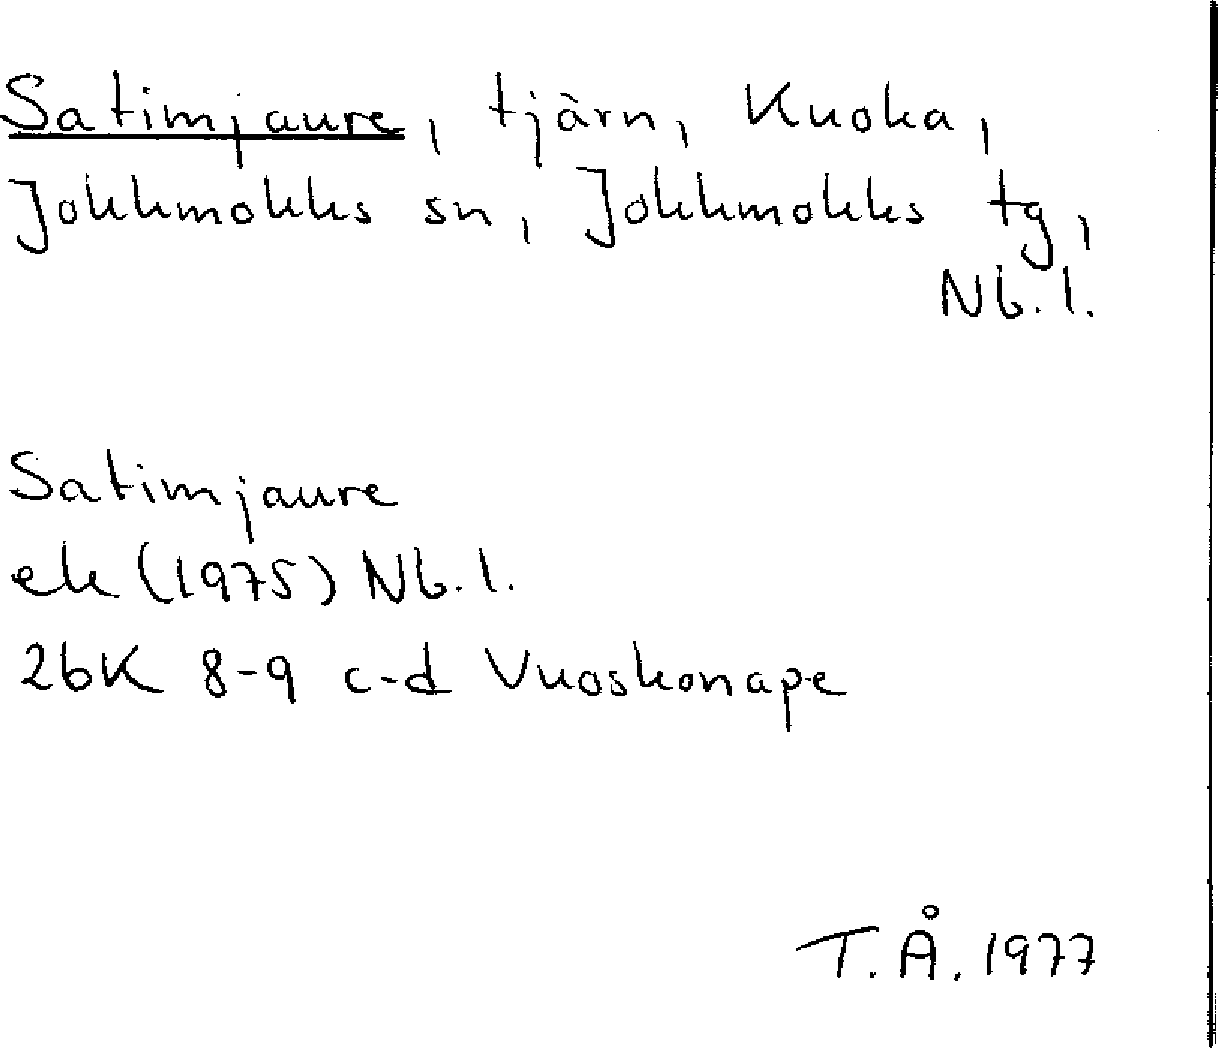 Satimjaure, tjärn, Kuoka,
Jokkmokks sn, Jokkmokks tg,
Nb. l.
Satimjaure
ek (1975) Nb. l.
26K 8-9 c-d Vuoskonape
T. Å. 1977